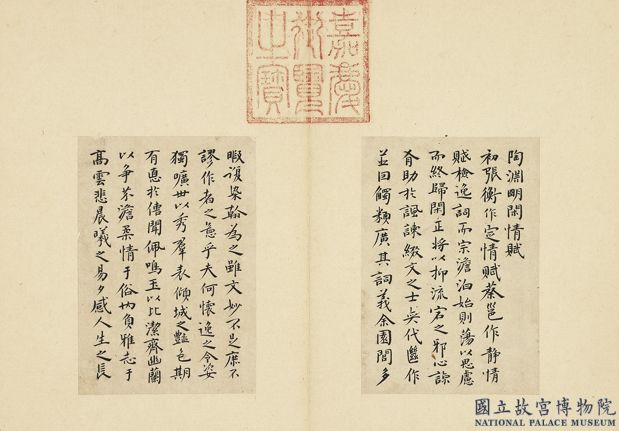 嘉慶
御覽
之寶
陶淵明閑情賦
初張衡作定情賦蔡邕作靜情
賦檢逸詞而宗澹泊始則蕩以思慮
而終歸閑正將以抑流宕之邪心諒
有助於諷諫綴文之士奕代繼作
並因觸類廣其詞義余園閭多
暇復染翰為之雖文妙不足庶不
謬作者之意乎夫何懷逸之令姿
獨曠世以秀羣表傾城之豔色期
有惪於傳聞佩鳴玉以比潔齊幽蘭
以爭芬澹柔情于俗內負雅志于
高雲悲晨曦之易夕感人生之長
國立故宮博物院
NATIONAL PALACE MUSEUM